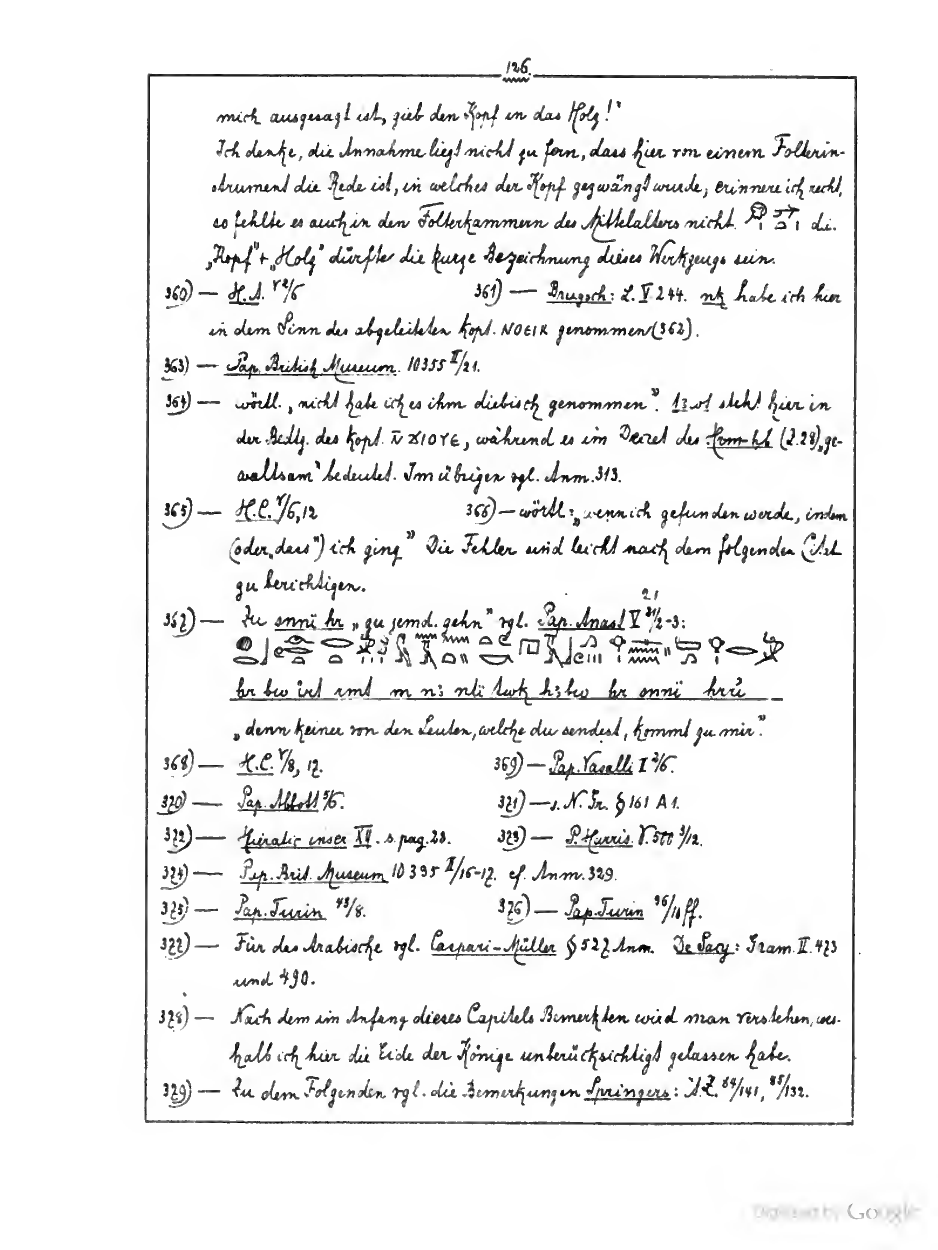 126.
mich ausgesagt ist, gieb den Kopf in das Holz!"
Ich denke, die Annahme liegt nicht zu fern, dass hier von einem Folterin-
strument die Rede ist, in welches der Kopf gezwängt wurde; erinnere ich recht,
so fehlte es auch in den Folterkammern des Mittelalters nicht. d.i.
„Kopf" + „Holz" dürfte die kurze Bezeichnung dieses Werkzeugs sein.
360) — H.A. 361) — Brugsch: L. V. 244. nk habe ich hier
in dem Sinn des abgeleiteten kopt. ⲛⲟⲉⲓⲕ genommen (362).
363) — Pap. British Museum. 10355 II/21.
364) — wörtl. „nicht habe ich es ihm diebisch genommen". steht hier in
der Bedtg. des kopt. ⲛ̄ ϫⲓⲟⲩⲉ, während es im Decret des Ḥr-m-ḥb (Z. 28) „ge-
waltsam" bedeutet. Im übrigen vgl. Anm. 313.
365) — H.C. V/6,12 366) — wörtl: „wenn ich gefunden werde, indem
(oder „dass") ich ging" Die Fehler sind leicht nach dem folgenden Citat
zu berichtigen.
367) — Zu „zu jemd. gehn" vgl. Pap. Anast V 21/2-3:
„denn keiner von den Leuten, welche du sendest, kommt zu mir".
368) — H.C. V/8, 17. 369) — Pap. Vasalli I 2/6.
370) — Pap. Abbott 5/6. 371) — s. N. Gr. § 161 A 1.
372) — Hieratic inscr XV. s. pag. 28. 373) — P. Harris. V. 500 3/12.
374) — Pap. Brit. Museum 10395 II/16-17. cf. Anm. 329.
375) — Pap. Turin 43/8. 376) — Pap. Turin 96/10 ff.
377) — Für das Arabische vgl. Caspari-Müller § 527 Anm. De Sacy: Gram. II. 473
und 490.
378) — Nach dem im Anfang dieses Capitels Bemerkten wird man verstehen, wes-
halb ich hier die Eide der Könige unberücksichtigt gelassen habe.
379) — Zu dem Folgenden vgl. die Bemerkungen Springers: A.Z. 84/141, 85/132.
Digitized by Google